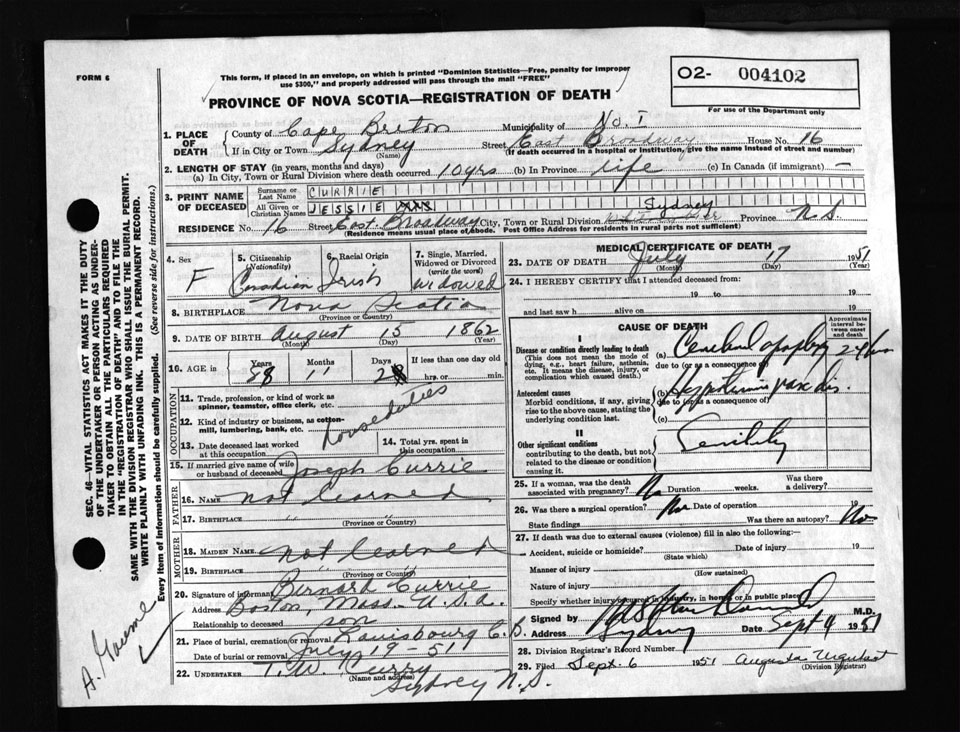 FORM 6
This form, if placed in an envelope, on which is printed "Dominion Statistics—Free, penalty for improper
use $300," and properly addressed will pass through the mail "FREE"
PROVINCE OF NOVA SCOTIA—REGISTRATION OF DEATH
O2- 004102
For use of the Department only
1. PLACE OF DEATH
County of Cape Breton Municipality of No. 1
If in City or Town Sydney (Name) Street East Broadway House No. 16
(If death occurred in a hospital or institution, give the name instead of street and number)
2. LENGTH OF STAY (in years, months and days)
(a) In City, Town or Rural Division where death occurred 10 yrs (b) In Province life (c) In Canada (if immigrant) —
3. PRINT NAME OF DECEASED
Surname or Last Name CURRIE
All Given or Christian Names JESSIE
RESIDENCE No. 16 Street East Broadway City, Town or Rural Division Sydney Province N.S.
(Residence means usual place of abode. Post Office Address for residents in rural parts not sufficient)
4. Sex F
5. Citizenship (Nationality) Canadian
6. Racial Origin Irish
7. Single, Married, Widowed or Divorced (write the word) widowed
8. BIRTHPLACE Nova Scotia
(Province or Country)
9. DATE OF BIRTH August 15 1862
(Month) (Day) (Year)
10. AGE in Years 88 Months 11 Days 2 If less than one day old
hrs. or min.
OCCUPATION
11. Trade, profession, or kind of work as
spinner, teamster, office clerk, etc.
12. Kind of industry or business, as cotton-
mill, lumbering, bank, etc.
house duties
13. Date deceased last worked
at this occupation
14. Total yrs. spent in
this occupation
15. If married give name of wife
or husband of deceased Joseph Currie
FATHER
16. NAME not learned
17. BIRTHPLACE " "
(Province or Country)
MOTHER
18. MAIDEN NAME not learned
19. BIRTHPLACE " "
(Province or Country)
20. Signature of informant Bernard Currie
Address Boston, Mass. U.S.A.
Relationship to deceased son
21. Place of burial, cremation or removal Louisbourg C.B.
Date of burial or removal July 19-51
22. UNDERTAKER T.W. Curry
(Name and address)
Sydney N.S.
MEDICAL CERTIFICATE OF DEATH
23. DATE OF DEATH July 17 1951
(Month) (Day) (Year)
24. I HEREBY CERTIFY that I attended deceased from
19 to 19
and last saw h alive on 19
CAUSE OF DEATH
Approximate interval between onset and death
I
Disease or condition directly leading to death
(This does not mean the mode of
dying, e.g., heart failure, asthenia,
etc. It means the disease, injury, or
complication which caused death.)
(a) Cerebral apoplexy
due to (or as a consequence of)
Antecedent causes
Morbid conditions, if any, giving
rise to the above cause, stating the
underlying condition last.
(b)
due to (or as a consequence of)
(c)
II
Other significant conditions
contributing to the death, but not
related to the disease or condition
causing it.
Senility
25. If a woman, was the death
associated with pregnancy? No Duration weeks. Was there
a delivery?
26. Was there a surgical operation? No Date of operation 19
State findings Was there an autopsy? No
27. If death was due to external causes (violence) fill in also the following:—
Accident, suicide or homicide? Date of injury 19
(State which)
Manner of injury
(How sustained)
Nature of injury
Specify whether injury occurred in industry, in home or in public place
Signed by M.D.
Address Sydney Date Sept 4 1951
28. Division Registrar's Record Number
29. Filed Sept. 6 1951 Augusta Urquhart
(Division Registrar)
SEC. 46—VITAL STATISTICS ACT MAKES IT THE DUTY
OF THE UNDERTAKER OR PERSON ACTING AS UNDER-
TAKER TO OBTAIN ALL THE PARTICULARS REQUIRED
IN THE "REGISTRATION OF DEATH" AND TO FILE THE
SAME WITH THE DIVISION REGISTRAR WHO SHALL ISSUE THE BURIAL PERMIT.
WRITE PLAINLY WITH UNFADING INK. THIS IS A PERMANENT RECORD.
Every item of information should be carefully supplied. (See reverse side for instructions.)